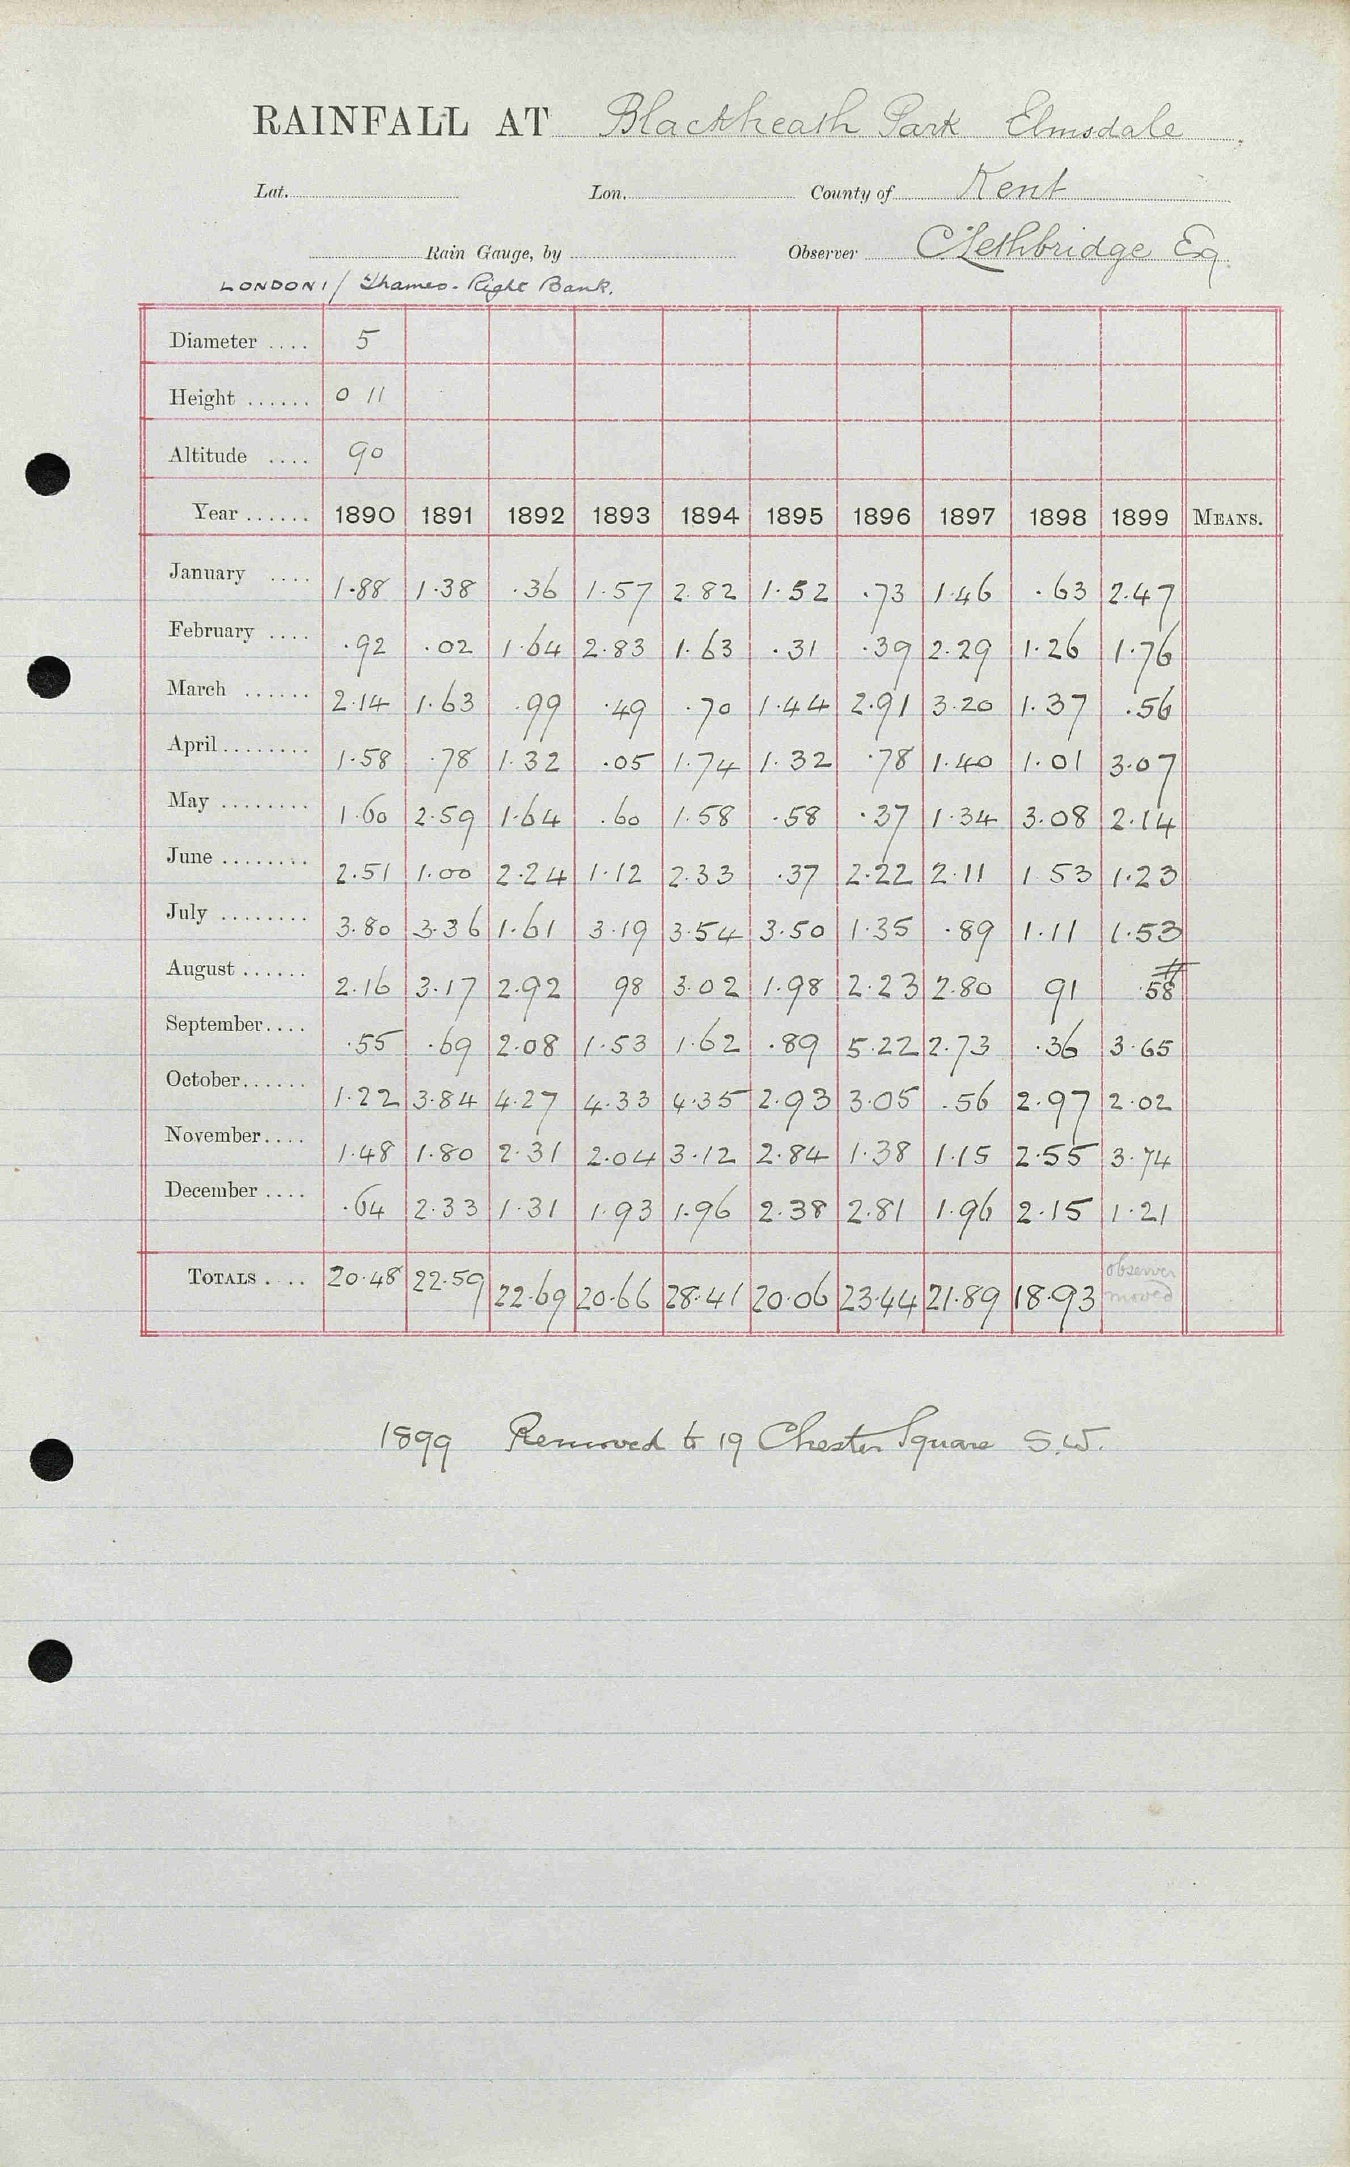 RAINFALL AT Blackheath Park Elmsdale
Lat. Lon. County of Kent
Rain Gauge, by Observer C Lethbridge Esq
LONDON 1/ Thames - Right Bank.
Diameter .... 5
Height ...... 0 11
Altitude .... 90
Year ...... 1890 1891 1892 1893 1894 1895 1896 1897 1898 1899 MEANS.
January .... 1.88 1.38 .36 1.57 2.82 1.52 .73 1.46 .63 2.47
February .... .92 .02 1.64 2.83 1.63 .31 .39 2.29 1.26 1.76
March ...... 2.14 1.63 .99 .49 .70 1.44 2.91 3.20 1.37 .56
April ........ 1.58 .78 1.32 .05 1.74 1.32 .78 1.40 1.01 3.07
May ........ 1.60 2.59 1.64 .60 1.58 .58 .37 1.34 3.08 2.14
June ........ 2.51 1.00 2.24 1.12 2.33 .37 2.22 2.11 1 53 1.23
July ........ 3.80 3.36 1.61 3.19 3.54 3.50 1.35 .89 1.11 1.53
August ...... 2.16 3.17 2.92 98 3.02 1.98 2.23 2.80 91 .58 #
September .... .55 .69 2.08 1.53 1.62 .89 5.22 2.73 .36 3.65
October ...... 1.22 3.84 4.27 4.33 4.35 2.93 3.05 .56 2.97 2.02
November .... 1.48 1.80 2.31 2.04 3.12 2.84 1.38 1.15 2.55 3.74
December .... .64 2.33 1.31 1.93 1.96 2.38 2.81 1.96 2.15 1.21
TOTALS .... 20.48 22.59 22.69 20.66 28.41 20.06 23.44 21.89 18.93 observer moved
1899 Removed to 19 Chester Square S.W.